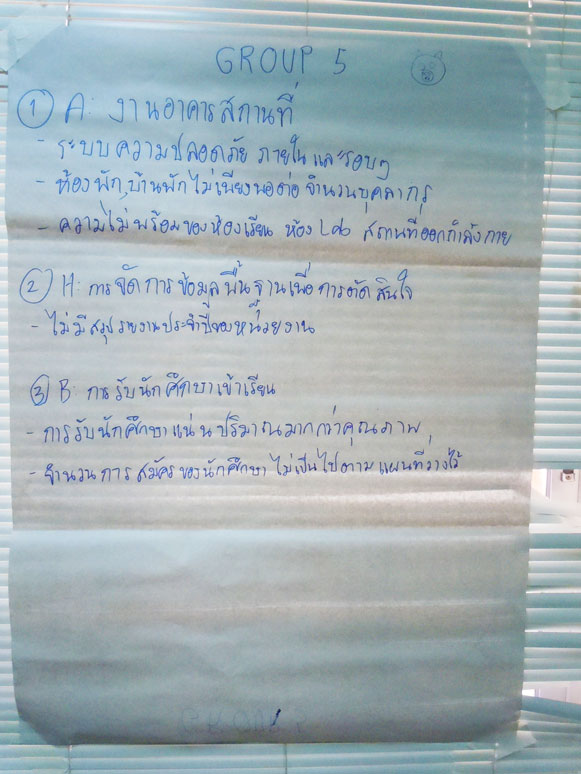 GROUP 5
① A: งานอาคารสถานที่
- ระบบความปลอดภัย ภายใน และรอบๆ
- ห้องพัก, บ้านพักไม่เพียงพอต่อ จำนวนบุคลากร
- ความไม่พร้อมของห้องเรียน ห้อง Lab สถานที่ออกกำลังกาย
② H: การจัดการข้อมูลพื้นฐานเพื่อการตัดสินใจ
- ไม่มีสรุปรายงานประจำปีของหน่วยงาน
③ B: การรับนักศึกษาเข้าเรียน
- การรับนักศึกษาเน้นปริมาณมากกว่าคุณภาพ
- จำนวนการสมัครของนักศึกษา ไม่เป็นไปตามแผนที่วางไว้